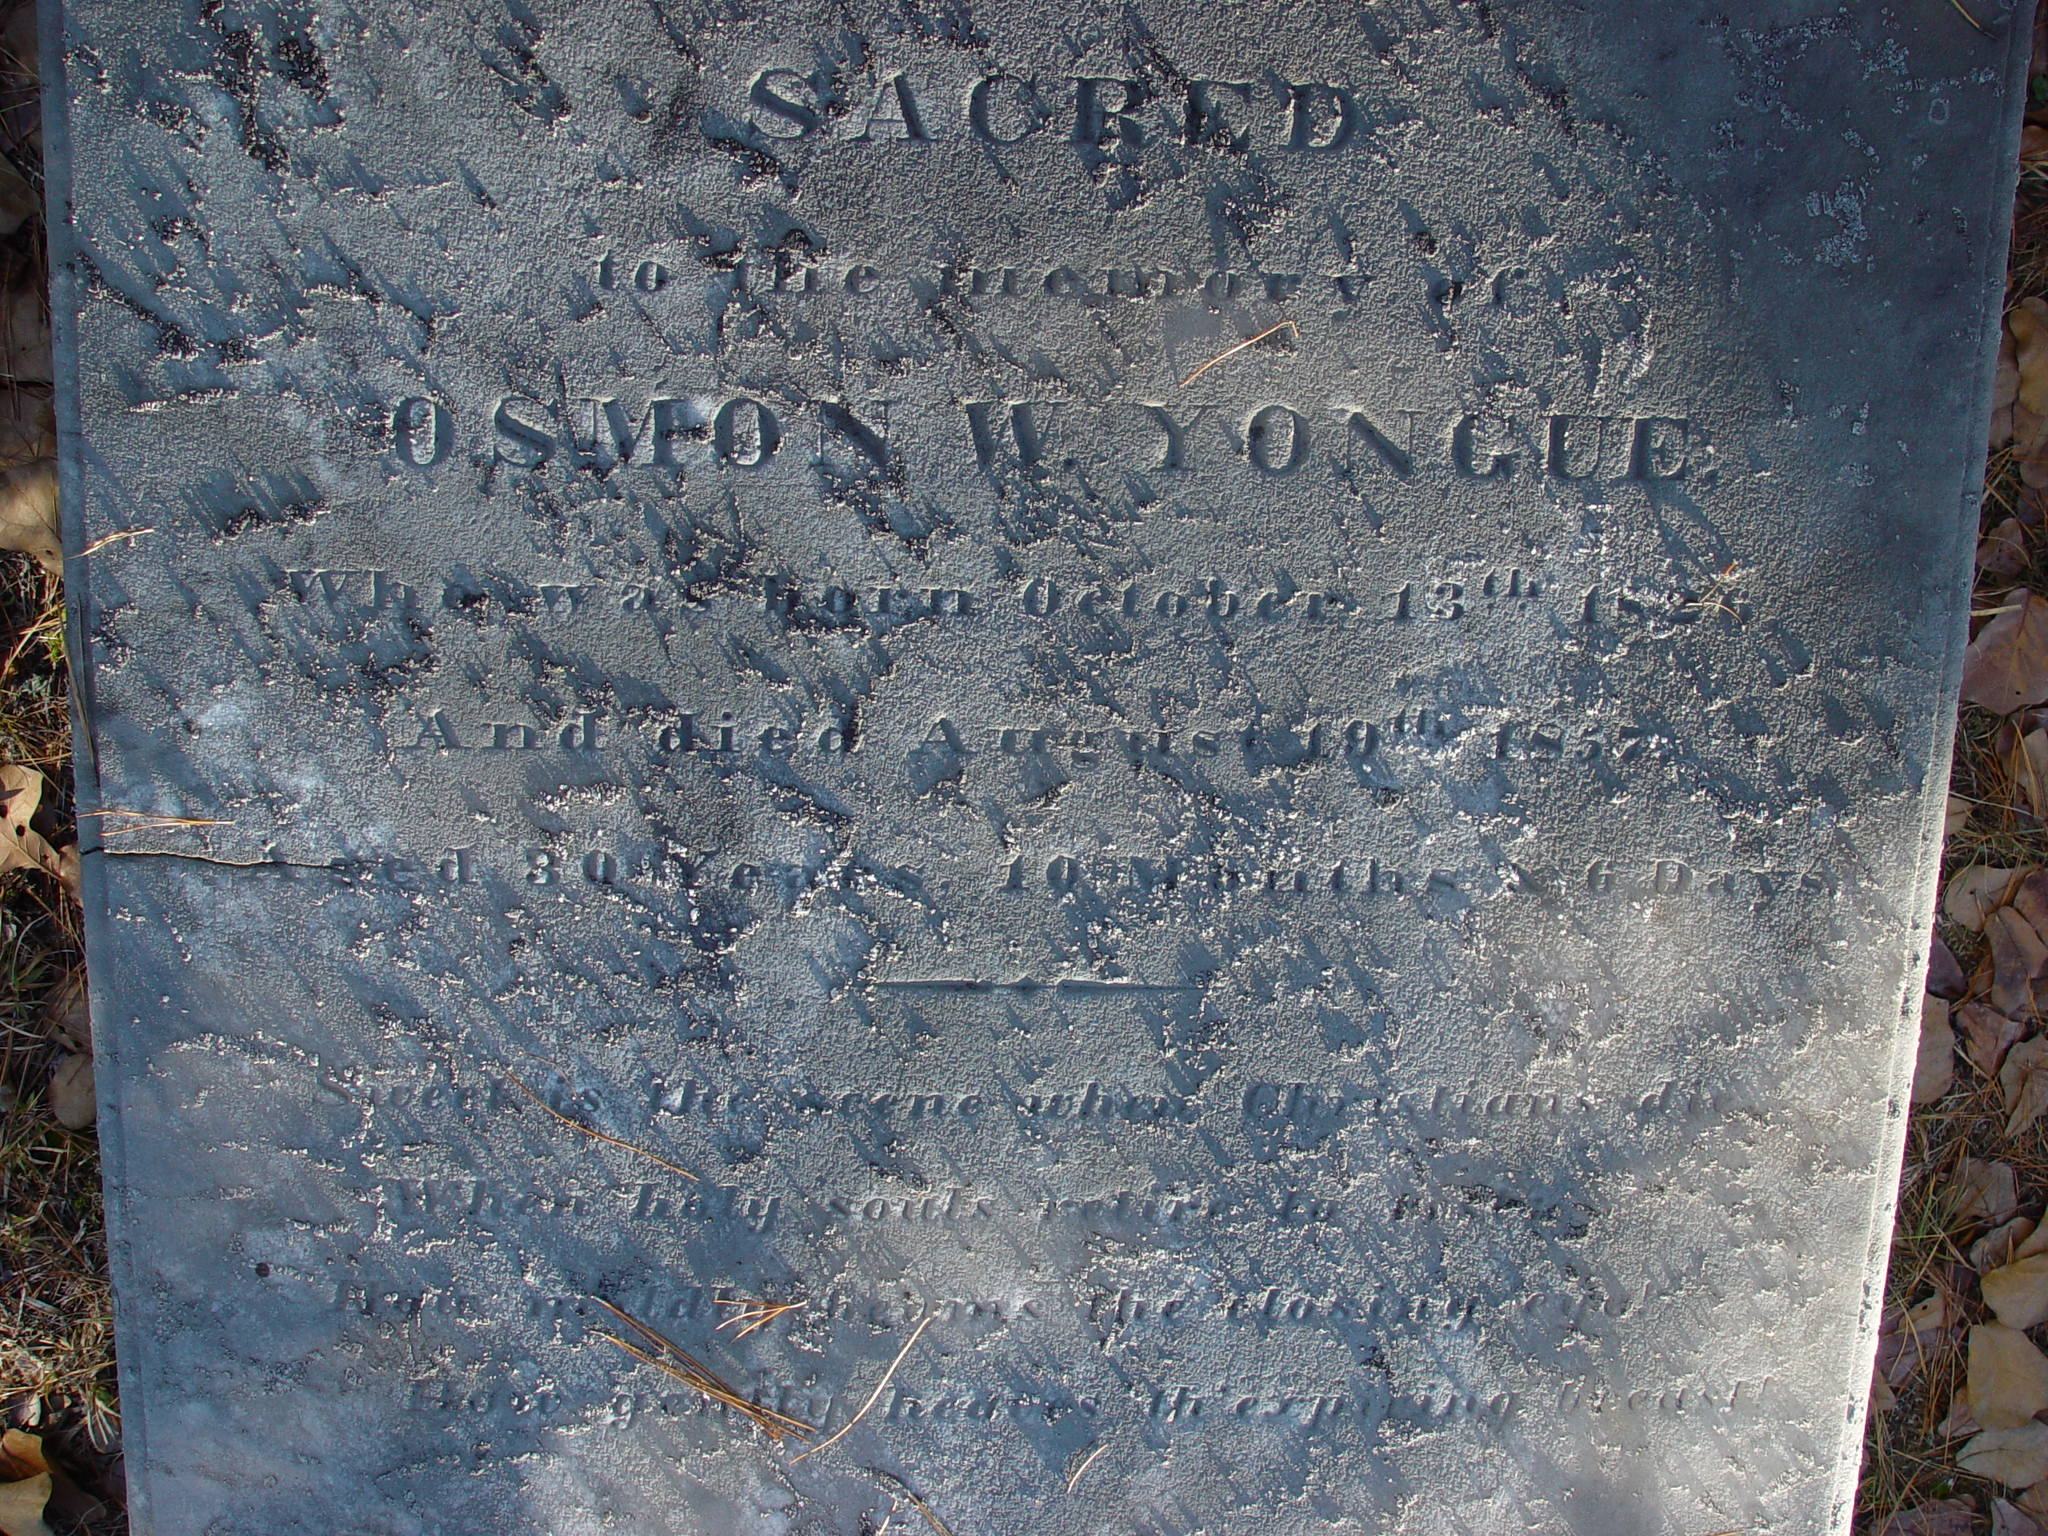 SACRED
to the memory of
OSMON W. YONGUE.
Who was born October 13th 1826
And died August 19th 1857
Aged 30 Years, 10 Months & 6 Days
Sweet is the scene when Christians die
When holy souls retire to rest:
How mildly beams the closing eye
How gently heaves th'expiring breast!